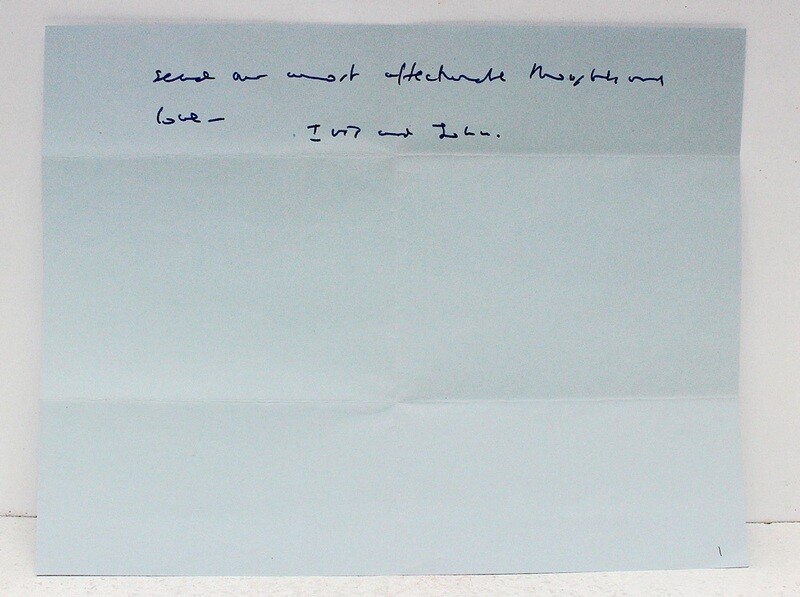 send our most affectionate thoughts and
love –
and John.